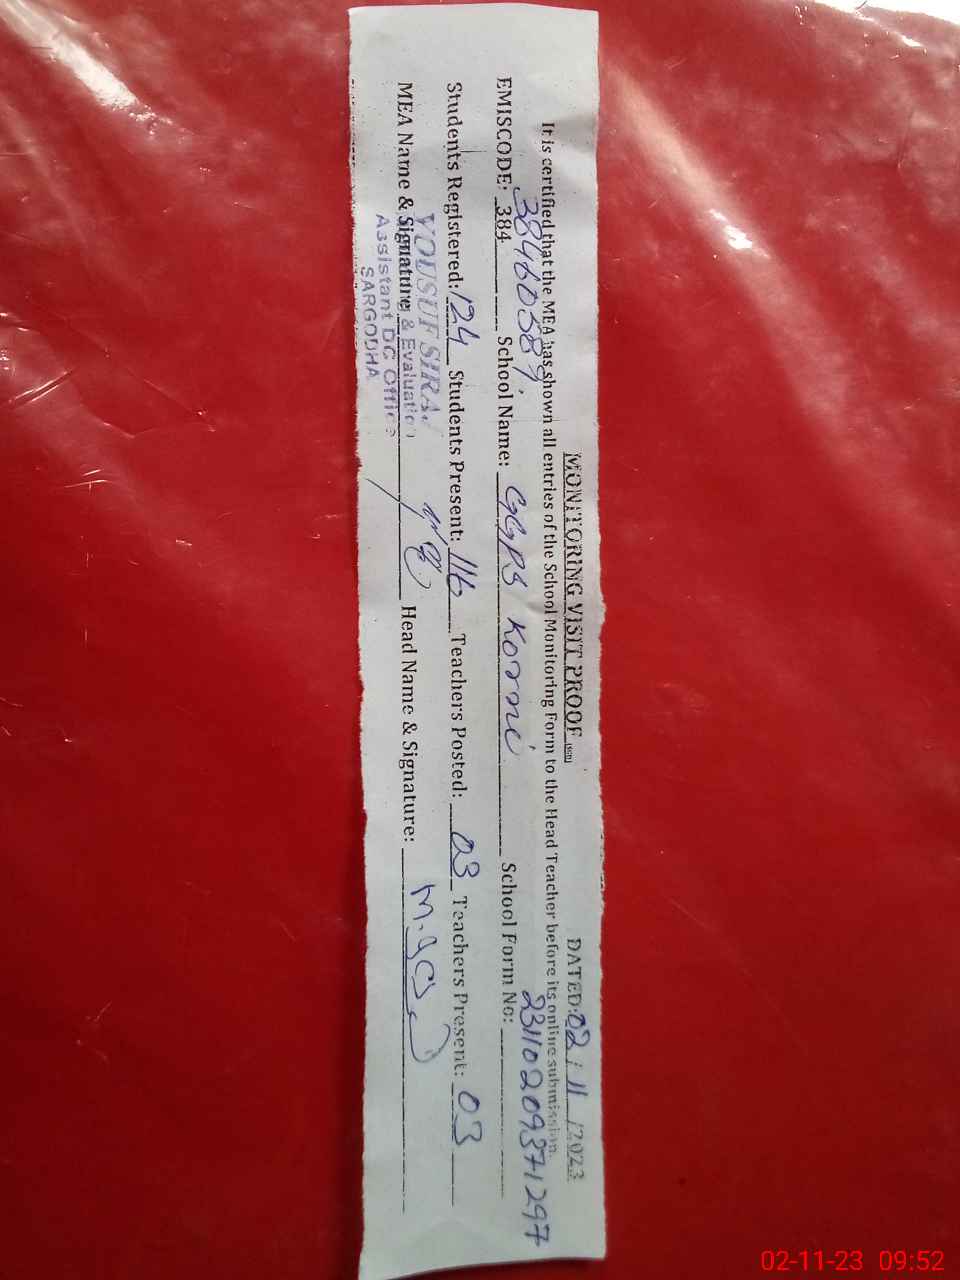 MONITORING VISIT PROOF DATED: 02 / 11 /2023
It is certified that the MEA has shown all entries of the School Monitoring Form to the Head Teacher before its online submission.
EMISCODE: 384 School Name: GGPS School Form No: 23110209371297
Students Registered: 124 Students Present: 116 Teachers Posted: 03 Teachers Present: 03
MEA Name & Signature Head Name & Signature:
YOUSUF
& Evaluation
Assistant DC Office
SARGODHA
02-11-23 09:52